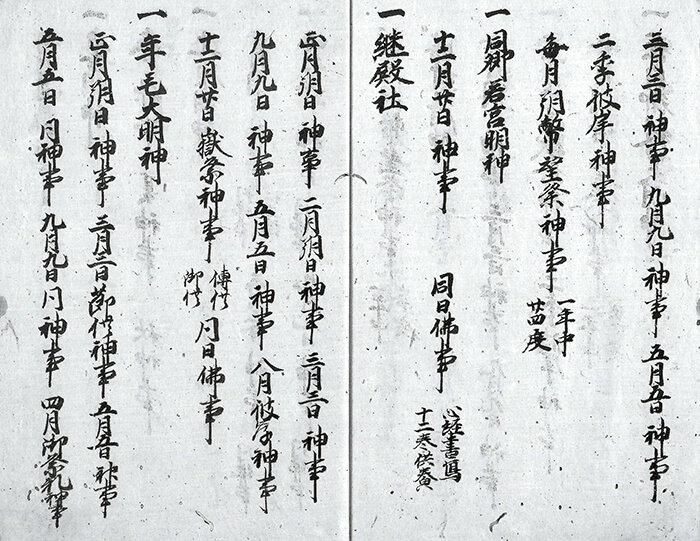 三月三日神事 九月九日神事 五月五日神事
二季彼岸神事
毎月朔幣望祭神事 一年中
廿四度
一 同郷若宮明神
十二月廿日 神事 同日佛事 心経書写
十二巻供養
一 継殿社
正月朔日 神事 二月朔日 神事 三月三日 神事
九月九日 神事 五月五日 神事 八月彼岸神事
十二月廿日 嶽祭神事 傳供
御供 同日佛事
一 年毛大明神
正月朔日 神事 三月三日節供神事 五月五日神事
五月五日 同神事 九月九日 同神事 四月御祭礼神事